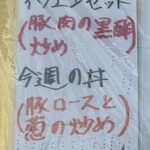 セット
(豚肉の黒酢
炒め
今週の丼
(豚ロースと
葱の炒め)